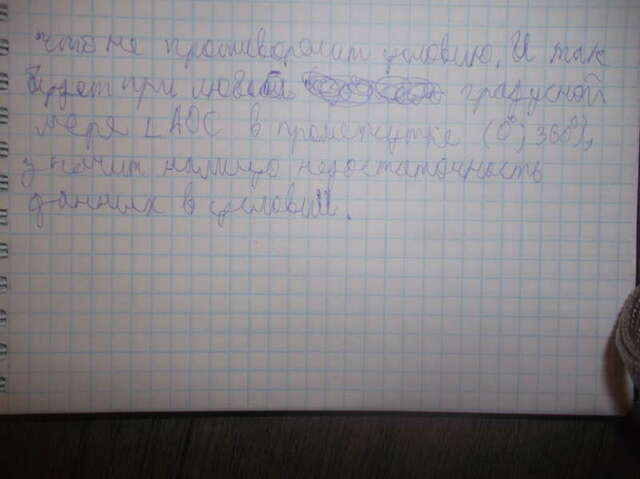 что не противоречит условию. И так
будет при любой градусной
мере ∠AOC в промежутке (0°; 360°),
значит налицо недостаточность
данных в условии.